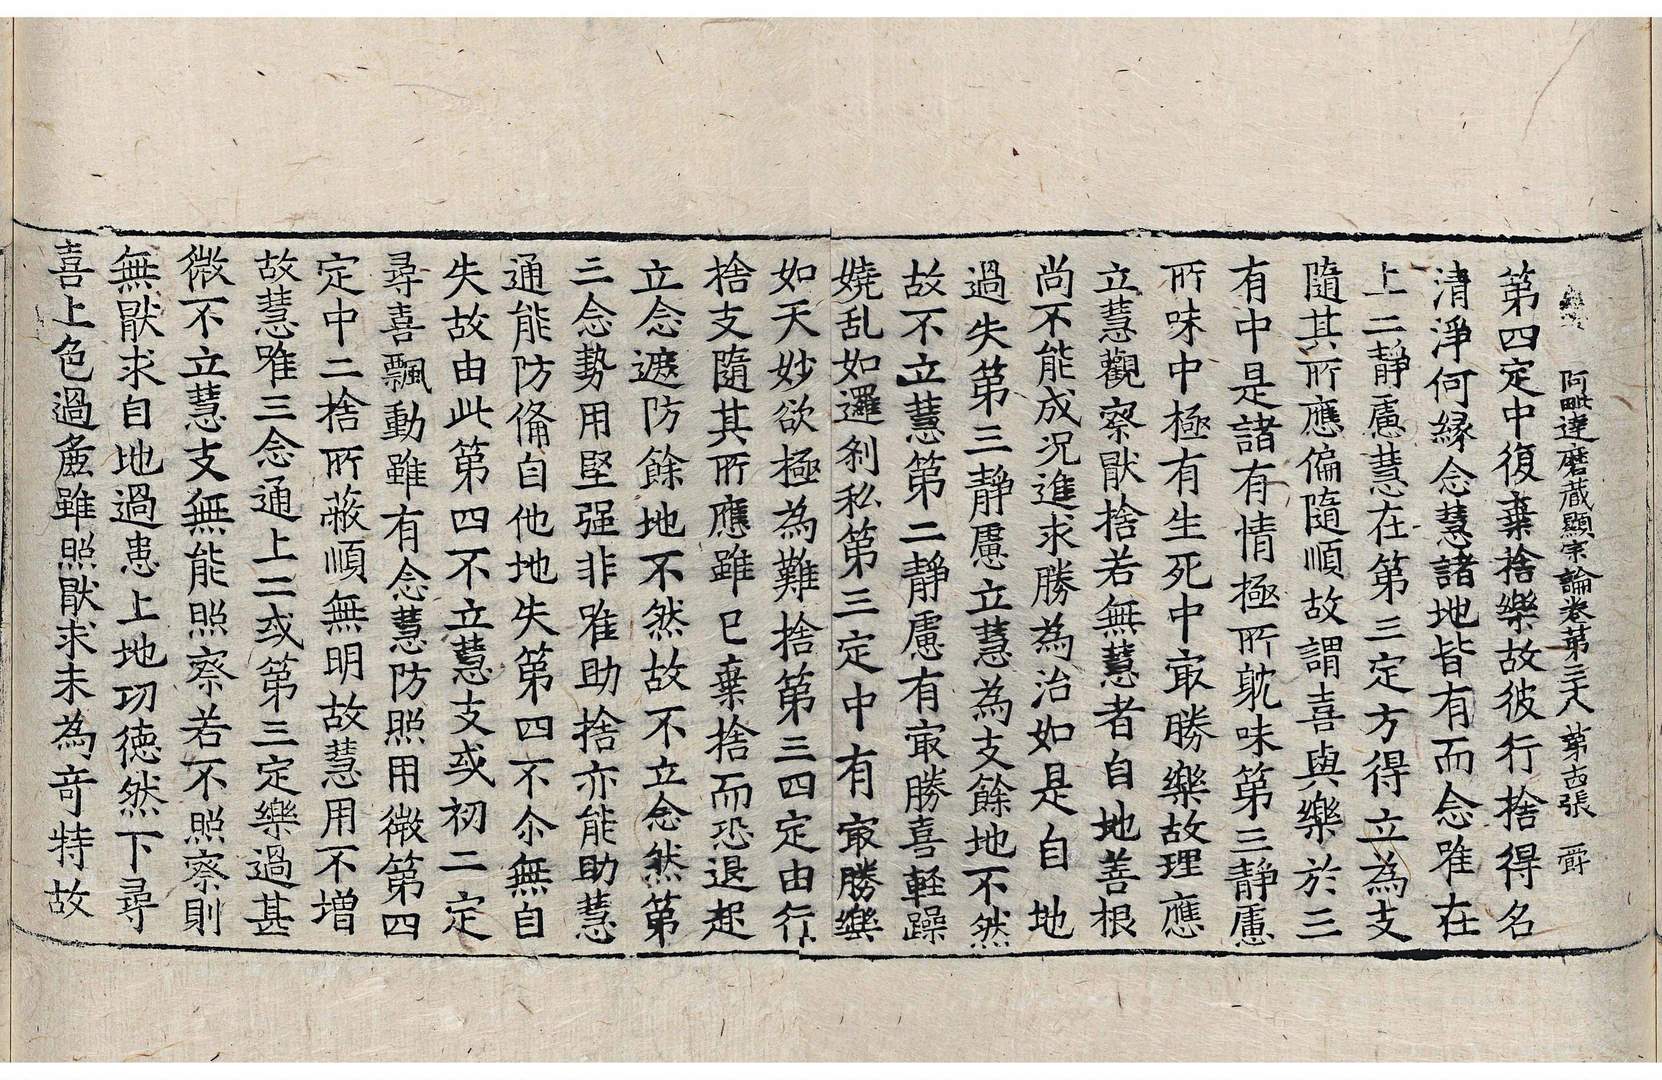 阿毗達磨藏顯宗論卷第三八 第古張 爵
第四定中復棄捨樂故彼行捨得名
清淨何緣念慧諸地皆有而念唯在
上二靜慮慧在第三定方得立為支
隨其所應偏隨順故謂喜與樂於三
有中是諸有情極所躭味第三靜慮
所味中極有生死中㝡勝樂故理應
立慧觀察猒捨若無慧者自地善根
尚不能成況進求勝為治如是自地
過失第三靜慮立慧為支餘地不然
故不立慧第二靜慮有㝡勝喜輕躁
嬈乱如邏刹私第三定中有㝡勝樂
如天妙欲極為難捨第三四定由行
捨支隨其所應雖已棄捨而恐退起
立念遮防餘地不然故不立念然第
三念勢用堅强非唯助捨亦能助慧
通能防俻自他地失第四不尒無自
失故由此第四不立慧支或初二定
尋喜飄動雖有念慧防照用微第四
定中二捨所蔽順無明故慧用不增
故慧唯三念通上二或第三定樂過甚
微不立慧支無能照察若不照察則
無猒求自地過患上地功德然下尋
喜上色過麁雖照猒求未為奇特故